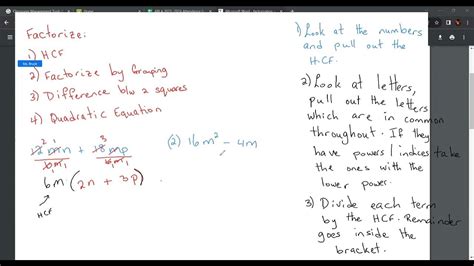 Factorize:
1) HCF
2) Factorize by Grouping
3) Difference b/w 2 squares
4) Quadratic Equation
2 1 3
12mn + 18mp
6m1 6m1
6m (2n + 3p)
HCF
(2) 16m² - 4m
1) Look at the numbers
and pull out the
HCF.
2) Look at letters,
pull out the letters
which are in common
throughout. If they
have powers/indices take
the ones with the
lower power.
3) Divide each term
by the HCF. Remainder
goes inside the
bracket.